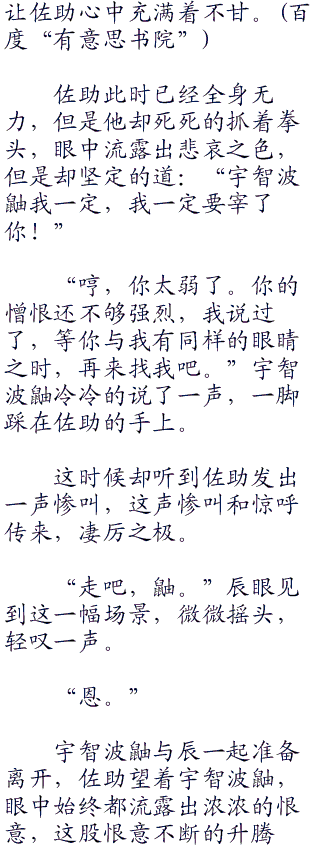 让佐助心中充满着不甘。(百
度“有意思书院”)
佐助此时已经全身无
力，但是他却死死的抓着拳
头，眼中流露出悲哀之色，
但是却坚定的道：“宇智波
鼬我一定，我一定要宰了
你！”
“哼，你太弱了。你的
憎恨还不够强烈，我说过
了，等你与我有同样的眼睛
之时，再来找我吧。”宇智
波鼬冷冷的说了一声，一脚
踩在佐助的手上。
这时候却听到佐助发出
一声惨叫，这声惨叫和惊呼
传来，凄厉之极。
“走吧，鼬。”辰眼见
到这一幅场景，微微摇头，
轻叹一声。
“恩。”
宇智波鼬与辰一起准备
离开，佐助望着宇智波鼬，
眼中始终都流露出浓浓的恨
意，这股恨意不断的升腾